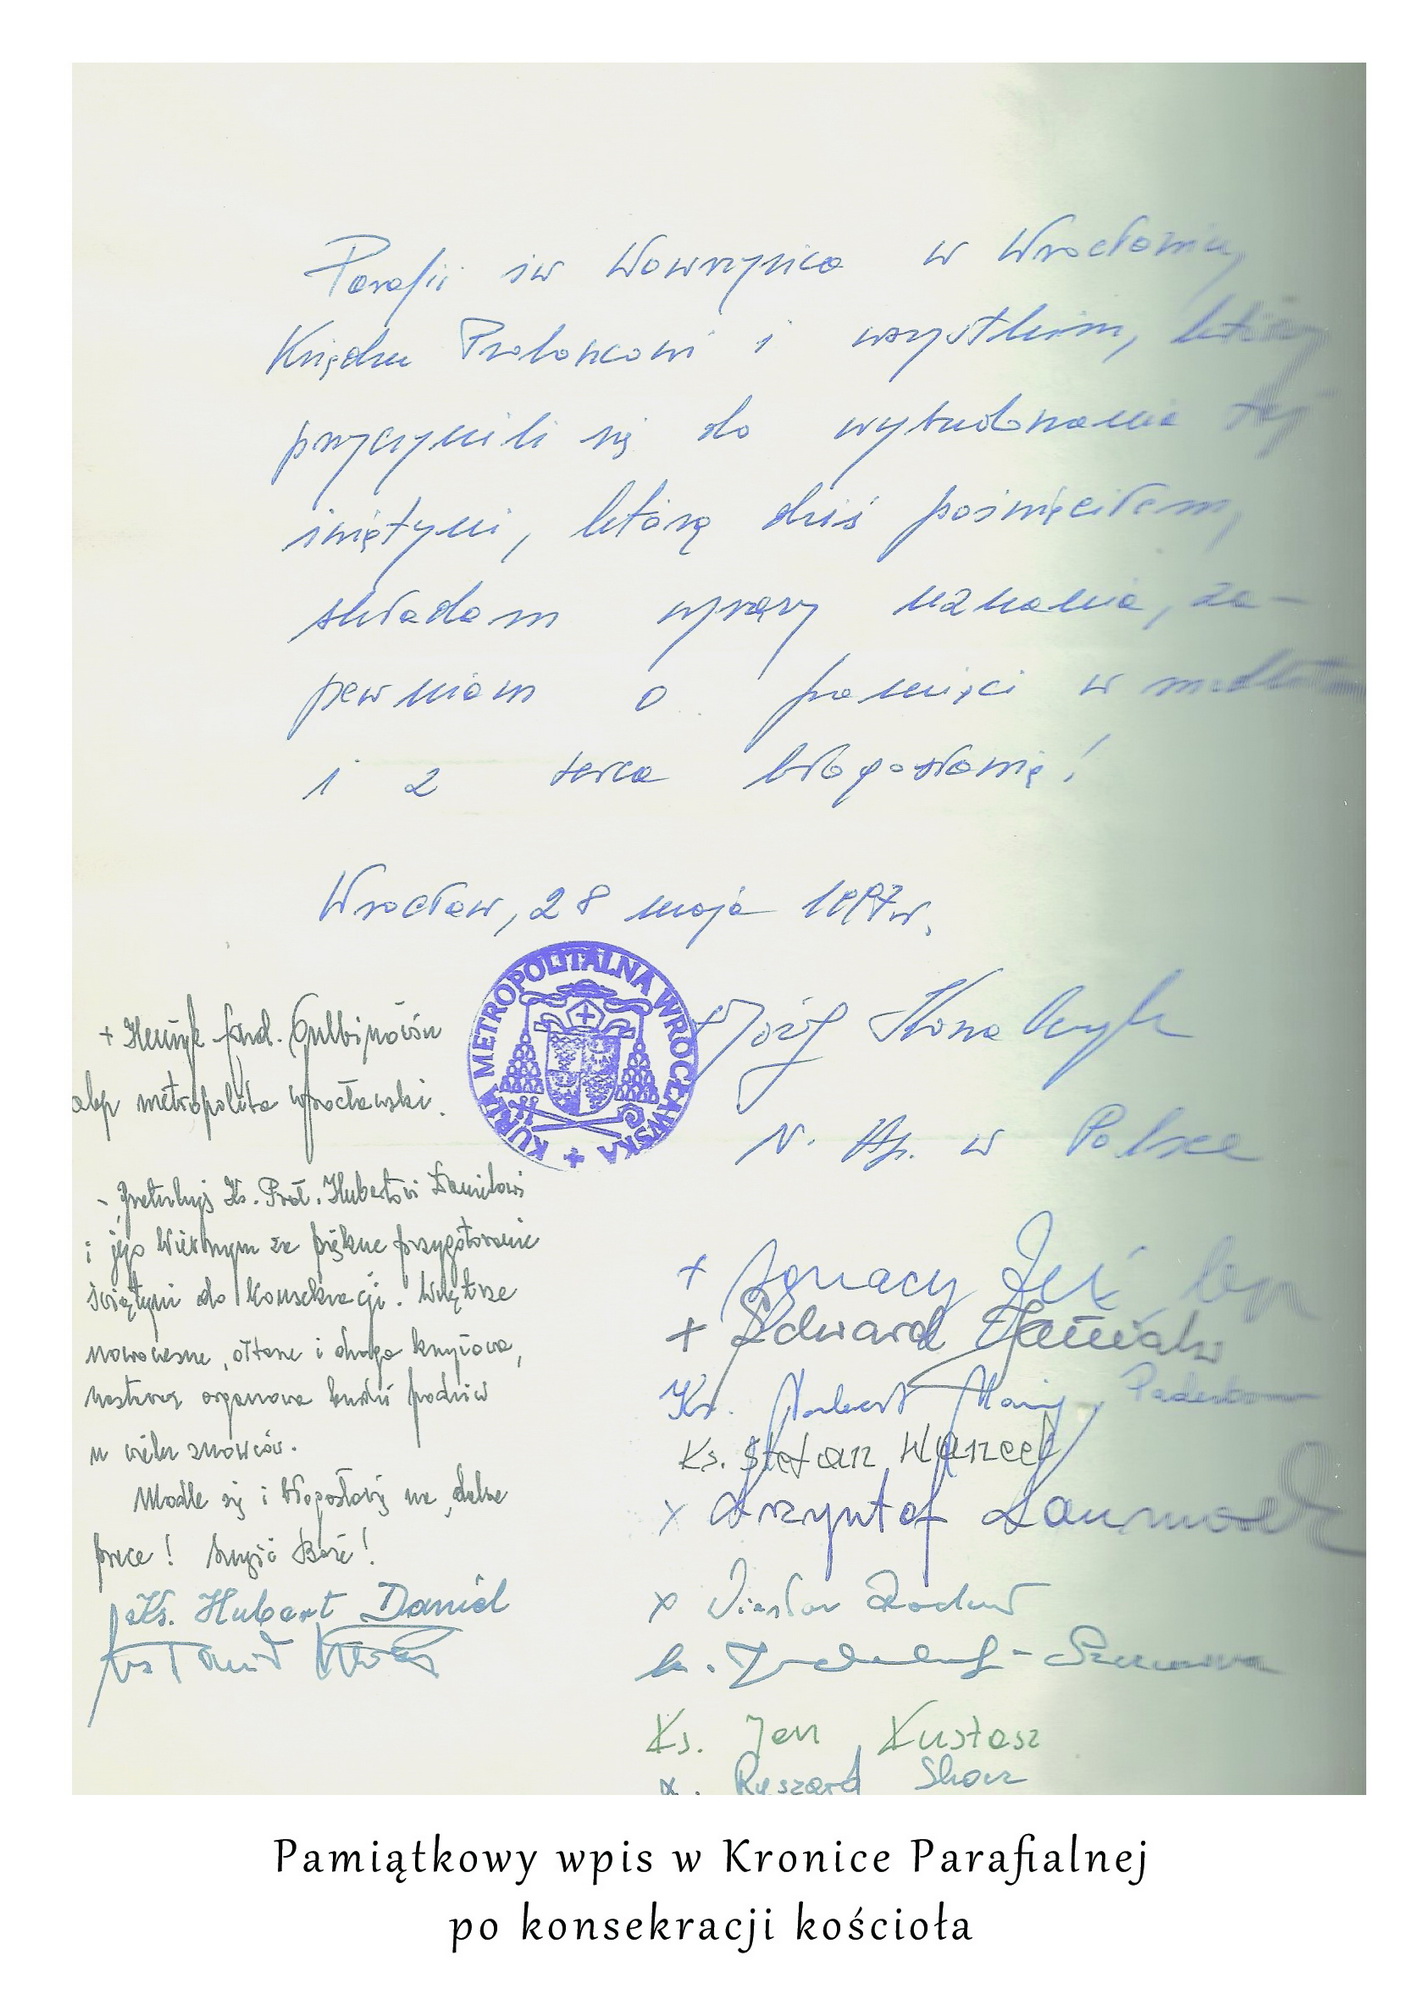 Parafii św Wawrzyńca w Wrocławiu,
Księdzu Prałatowi i wszystkim, którzy
przyczynili się do wybudowania tej
świątyni, którą dziś poświęciłem,
składam wyrazy uznania, za-
pewniam o pamięci w modlitwie
i z serca błogosławię!
Wrocław, 28 maja 1997 r.
+ Józef Kowalczyk
N. Ap. w Polsce
KURIA METROPOLITALNA WROCŁAWSKA
+ Henryk Kard. Gulbinowicz
abp metropolita wrocławski.
- Gratuluję Ks. Prał. Hubertowi Danielowi
i jego Wiernym za piękne przygotowanie
świątyni do konsekracji. Wnętrze
nowoczesne, ołtarz i droga krzyżowa,
organowe budzi podziw
u wielu znawców.
Modlę się i błogosławię na dalsze
prace! Szczęść Boże!
Ks. Hubert Daniel
+ Ignacy Jeż bp
+ Edward
Ks. Norbert Paderborn
Ks. Stefan
x Krzysztof
x Wiesław
Ks. Jan Kustasz
x. Ryszard
Pamiątkowy wpis w Kronice Parafialnej
po konsekracji kościoła